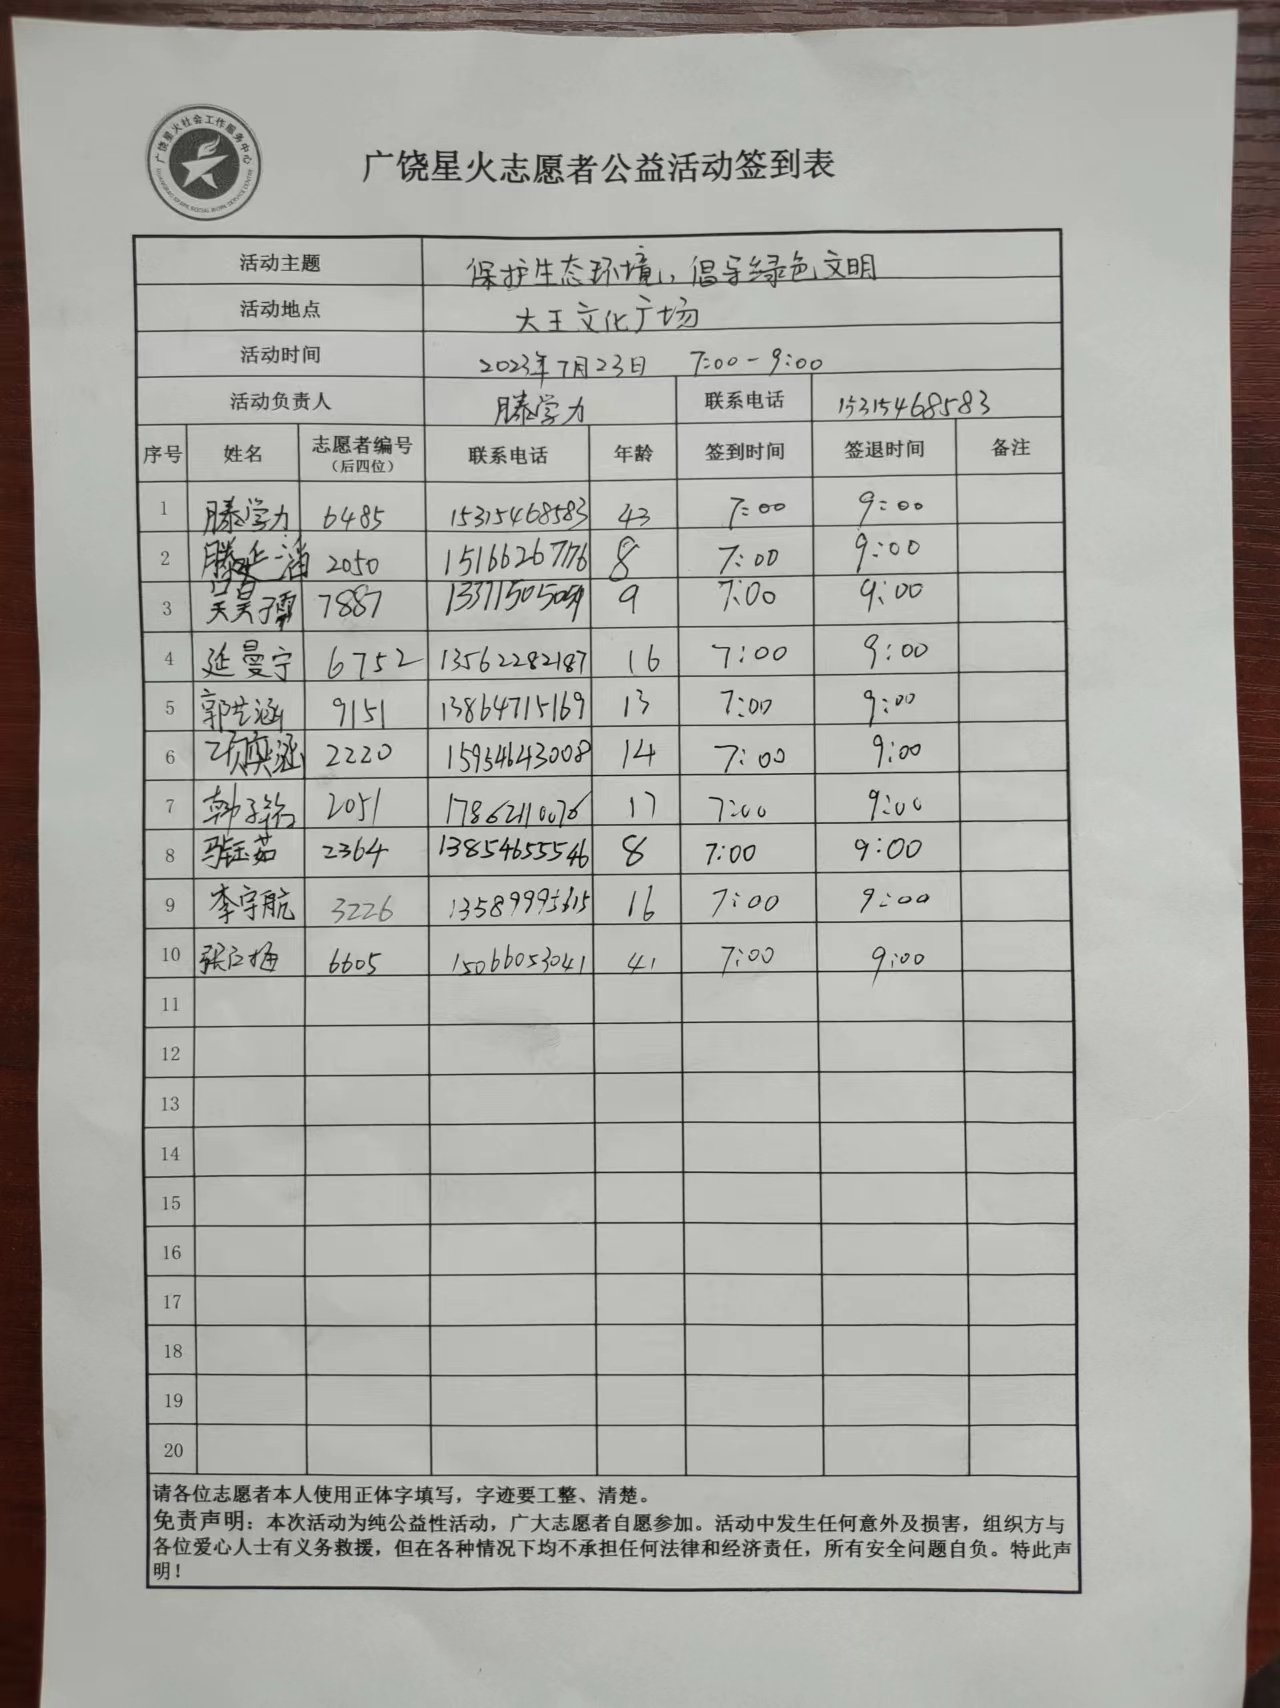 广饶星火社会工作服务中心
广饶星火志愿者公益活动签到表
活动主题 保护生态环境,倡导绿色文明
活动地点 大王文化广场
活动时间 2023年7月23日 7:00-9:00
活动负责人 滕学力 联系电话 15315468583
序号 姓名 志愿者编号(后四位) 联系电话 年龄 签到时间 签退时间 备注
1 滕学力 6485 15315468583 43 7:00 9:00
2 2050 15166267776 8 7:00 9:00
3 7887 9 7:00 9:00
4 延曼宁 6752 13562282187 16 7:00 9:00
5 郭艺涵 9151 13864715169 13 7:00 9:00
6 2220 15954643008 14 7:00 9:00
7 韩子铭 2051 17862110076 17 7:00 9:00
8 张钰茹 2364 13854655546 8 7:00 9:00
9 李宇航 3226 13589995615 16 7:00 9:00
10 张江梅 6605 15066053041 41 7:00 9:00
11
12
13
14
15
16
17
18
19
20
请各位志愿者本人使用正体字填写，字迹要工整、清楚。
免责声明：本次活动为纯公益性活动，广大志愿者自愿参加。活动中发生任何意外及损害，组织方与
各位爱心人士有义务救援，但在各种情况下均不承担任何法律和经济责任，所有安全问题自负。特此声
明！